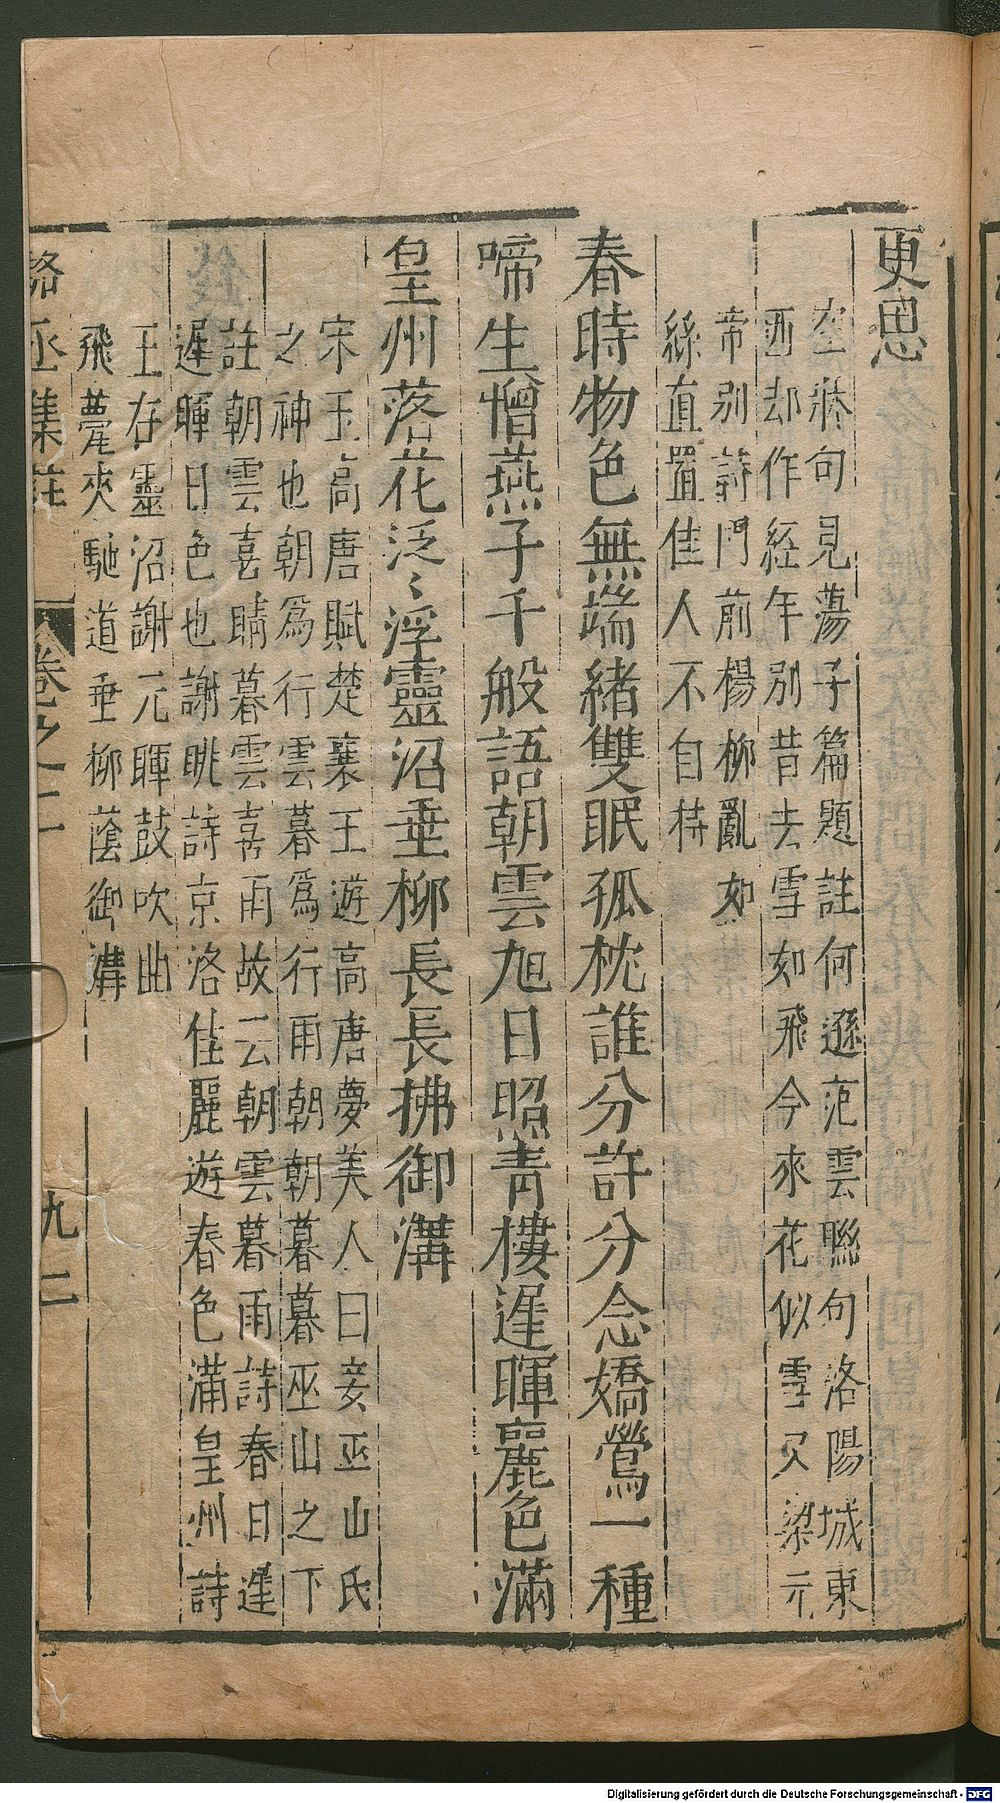 更思
空牀句見蕩子篇題註何遜范雲聯句洛陽城東
西却作經年別昔去雪如飛今來花似雪又梁元
帝別詩門前楊柳亂如
絲直置佳人不自持
春時物色無端緒雙眠孤枕誰分許分念嬌鶯一種
啼生憎燕子千般語朝雲旭日照青樓遲暉麗色滿
皇州落花泛〻浮靈沼垂柳長長拂御溝
宋玉高唐賦楚襄王遊高唐夢美人曰妾巫山氏
之神也朝爲行雲暮爲行雨朝朝暮暮巫山之下
註朝雲喜晴暮雲喜雨故云朝雲暮雨詩春日遲
遲暉日色也謝眺詩京洛佳麗遊春色滿皇州詩
王存靈沼謝元暉鼓吹曲
飛甍夾馳道垂柳蔭御溝
駱丞集註 卷之二 九二
Digitalisierung gefördert durch die Deutsche Forschungsgemeinschaft - DFG